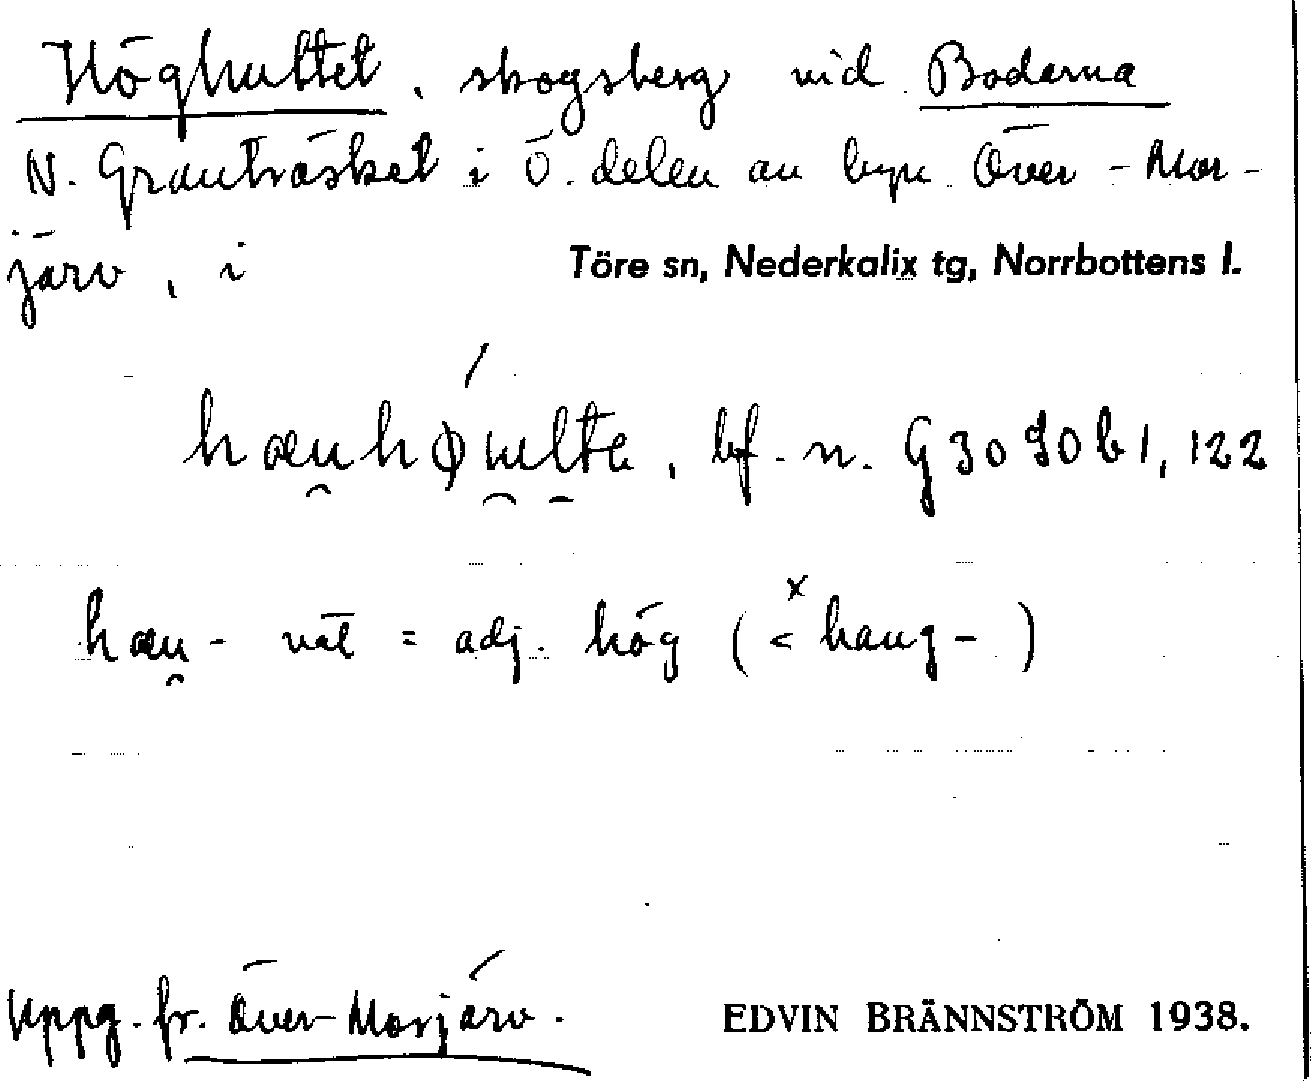 Höghultet, skogsberg vid Boderna
N. Granträsket i Ö. delen av byn Över-Mor-
järv, i Töre sn, Nederkalix tg, Norrbottens l.
bf. n. G 30 90 b 1, 122
hæu̯- väl = adj. hög (< ˣhaug-)
Uppg. fr. Över-Morjärv.
EDVIN BRÄNNSTRÖM 1938.